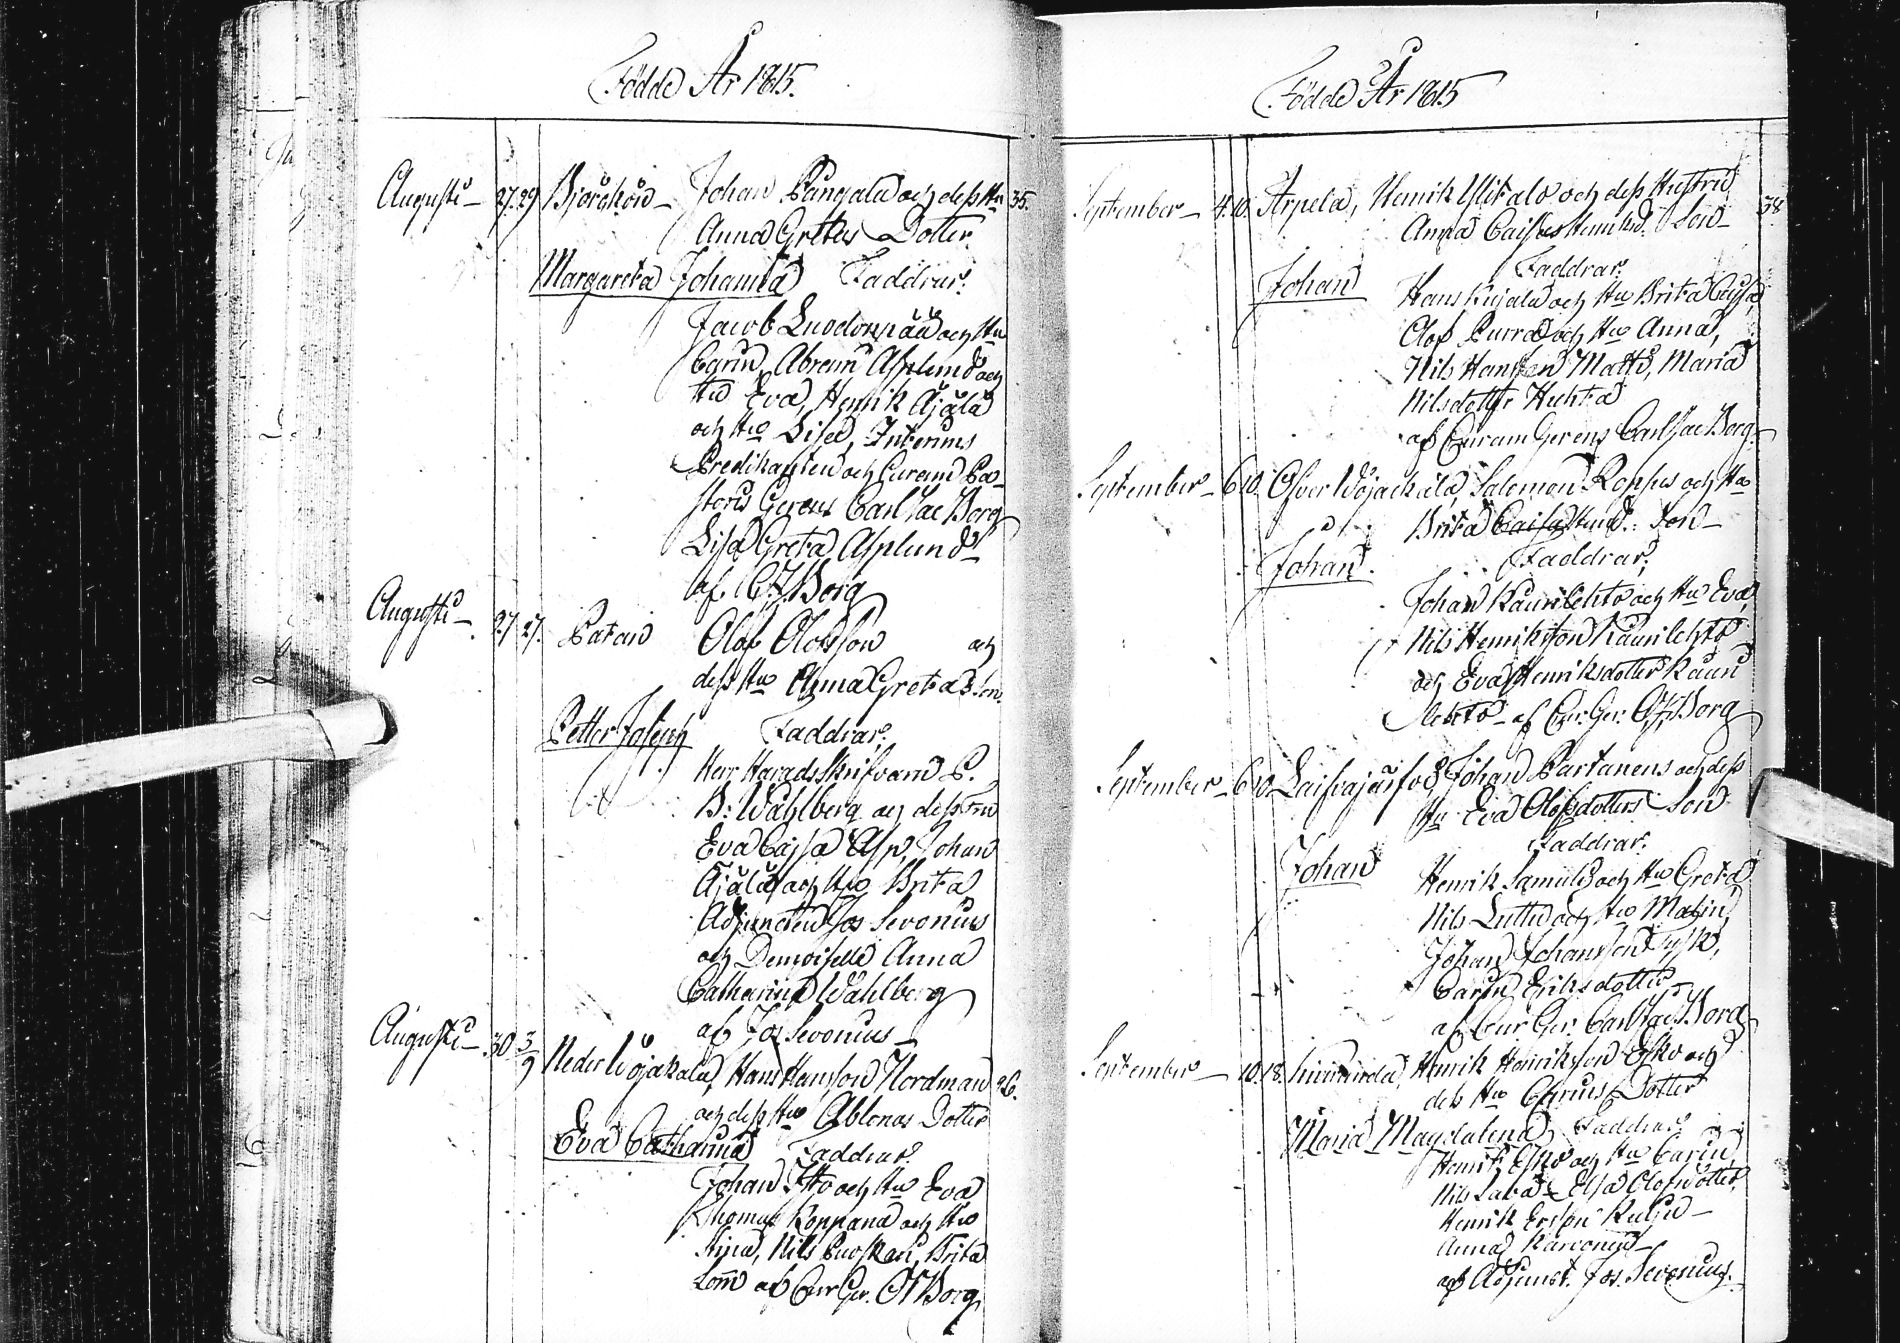 Födde År 1815.
Augusti – 27. 29 Björskön – Johan Pungala och dess Hu 35.
Anna Gretas Dotter
Margareta Johanna Faddrar:
Jacob och Hu
Carin, Abram Asplund och
Hu Eva, Henrik Ajala
och Hu Lisa, Interims
Predikanten och Curam Pa-
storis Gerens Carl Jac Borg
Lisa Greta Asplund
af C J Borg
Augusti – 27 27. Patan Olof Olofsson och
dess Hu Anna Greta Son
Petter Joseph Faddrar:
Herr Häradsskrifvaren P.
B: Wahlberg och dess Fru
Eva Cajsa Asp, Johan
Ajala och Hu Brita
Adjuncten Jos Sevonius
och Demoiselle Anna
Catharina Wahlberg
af Jos Sevonius –
Augusti – 30 3/9 Neder Wojakala, Hans Hansson Nordman 26.
och dess Hu Ablonas Dotter
Eva Catharina Faddrar
Johan Itto och Hu Eva
Thomas Koppana och Hu
Stina, Nils Brita
Lom af Cur Ger. C J Borg
Födde År 1815
September – 4. 10. Arpela, Henrik Ylitalo och dess Hustru 38.
Anna Caisas Son –
Faddrar:
Johan Hans Kujala och Hu Brita Cajsa,
Olof Purra och Hu Anna,
Nils Hansson Matti, Maria
Nilsdotter Huhta
af Curam Gerens Carl Jac Borg –
September – 6 10. Öfver Wojackala, Salomon Roppes och Hu
Brita Caisa Son –
Johan Faddrar,
Johan Kaurilehto och Hu Eva,
Nils Henriksson Kaurilehto
och Eva Henriksdotter Kauri
lehto – af Cur: Ger: C J Borg
September – 6 10. Laifvajärfvi, Johan Partanens och dess
Hu Eva Olofsdotters Son
Faddrar.
Johan Henrik Samuls och Hu Greta
Nils Luttu och Hu Malin,
Johan Johansson Tysk,
Carin Eriksdotter
af Cur Ger. Carl Jac Borg
September – 10. 18. Kiviranda, Henrik Henriksson Esko och
dess Hu Carins Dotter
Maria Magdalena Faddrar
Henrik Esko och Hu Carin,
Nils Laba – Elsa Olofsdotter,
Henrik Ersson –
Anna Karvonen –
af Adjunct. Jos. Sevonius. –